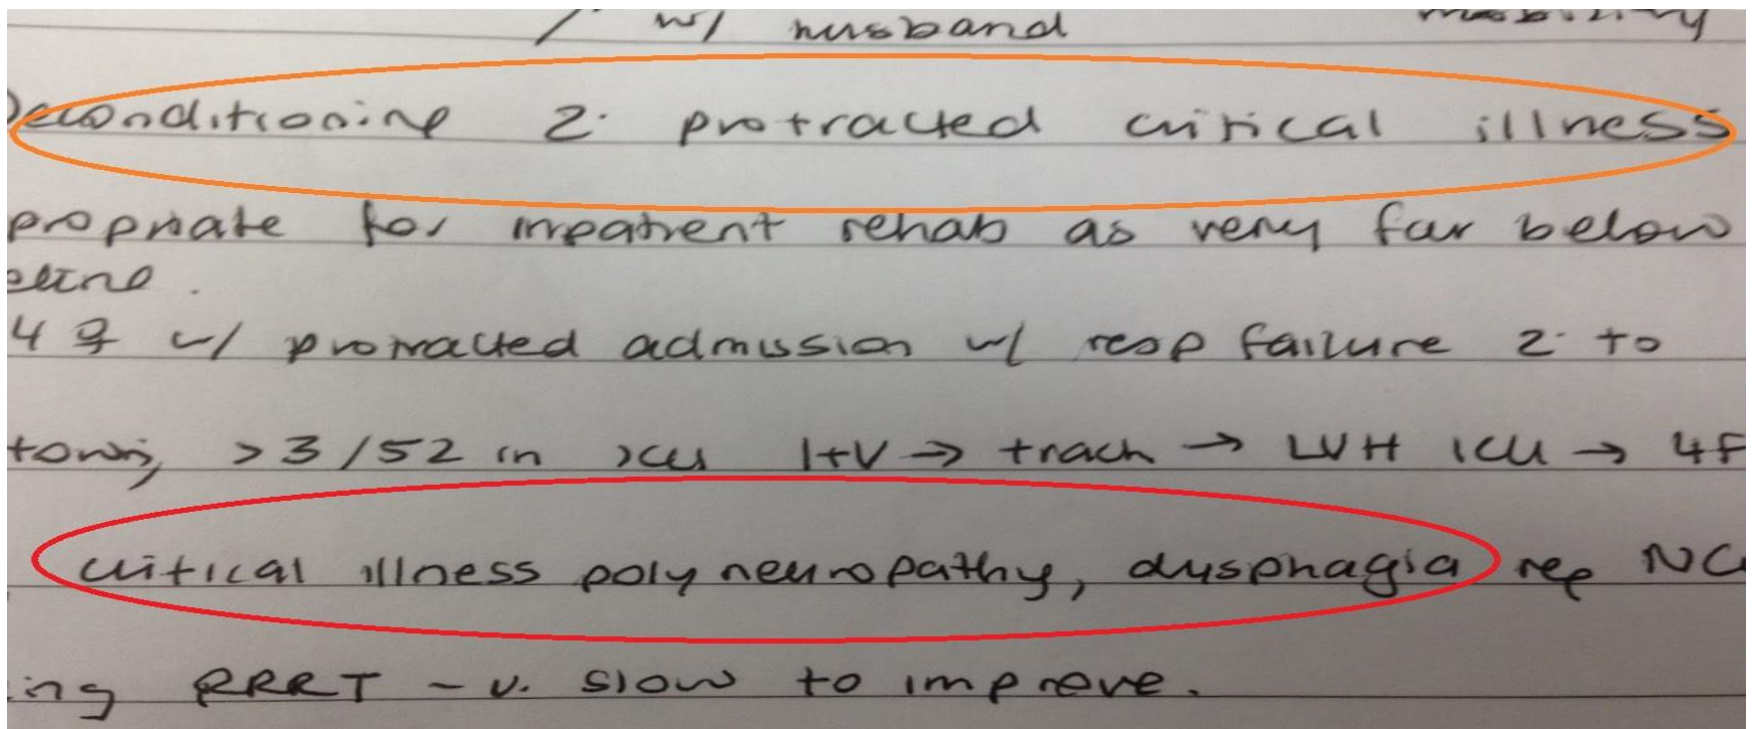 w/ husband mobility
Deconditioning 2° protracted critical illness
propriate for inpatient rehab as very far below
eline.
4 ♀ w/ protracted admission w/ resp failure 2° to
>3/52 in ICU I+V → trach → LVH ICU → 4F
critical illness polyneuropathy, dysphagia req NG
ing RRRT - v. slow to improve.